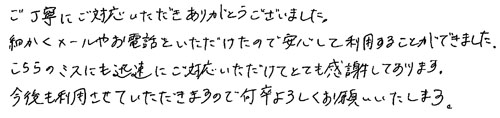 ご丁寧にご対応いただきありがとうございました。
細かくメールやお電話をいただけたので安心して利用することができました。
こちらのミスにも迅速にご対応いただけてとても感謝しております。
今後も利用させていただきますので何卒よろしくお願いいたします。